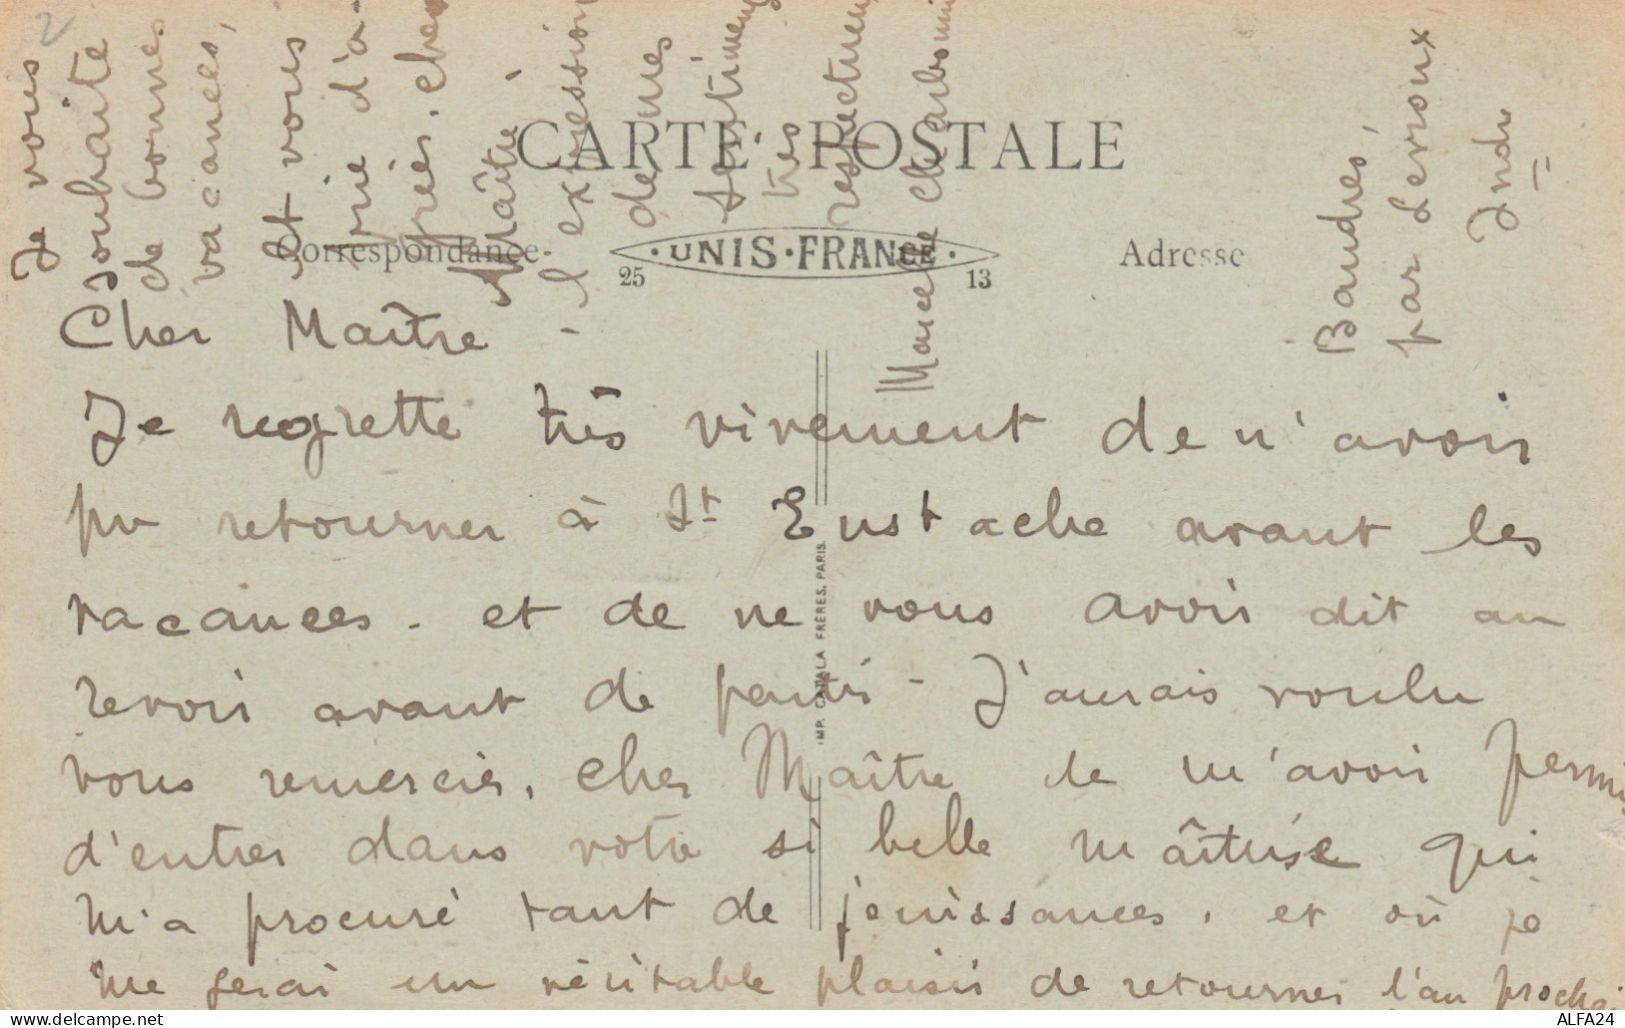 2
CARTE POSTALE
Correspondance
·UNIS·FRANCE·
25
13
Adresse
IMP. CATALA FRÈRES, PARIS.
Cher Maître
Je regrette très vivement de n'avoir
pu retourner à St Eustache avant les
vacances. et de ne vous avoir dit au
revoir avant de partir - J'aurais voulu
vous remercier, cher Maître de m'avoir permis
d'entrer dans votre si belle maîtrise qui
m'a procuré tant de jouissances, et où je
me ferai un véritable plaisir de retourner l'an prochain
Je vous
souhaite
de bonnes
vacances,
et vous
prie d'a-
gréer, cher
Maître,
l'expression
de mes
sentiments
très
respectueux
Marcelle
Baudres,
par Levroux,
Indre
ALFA24